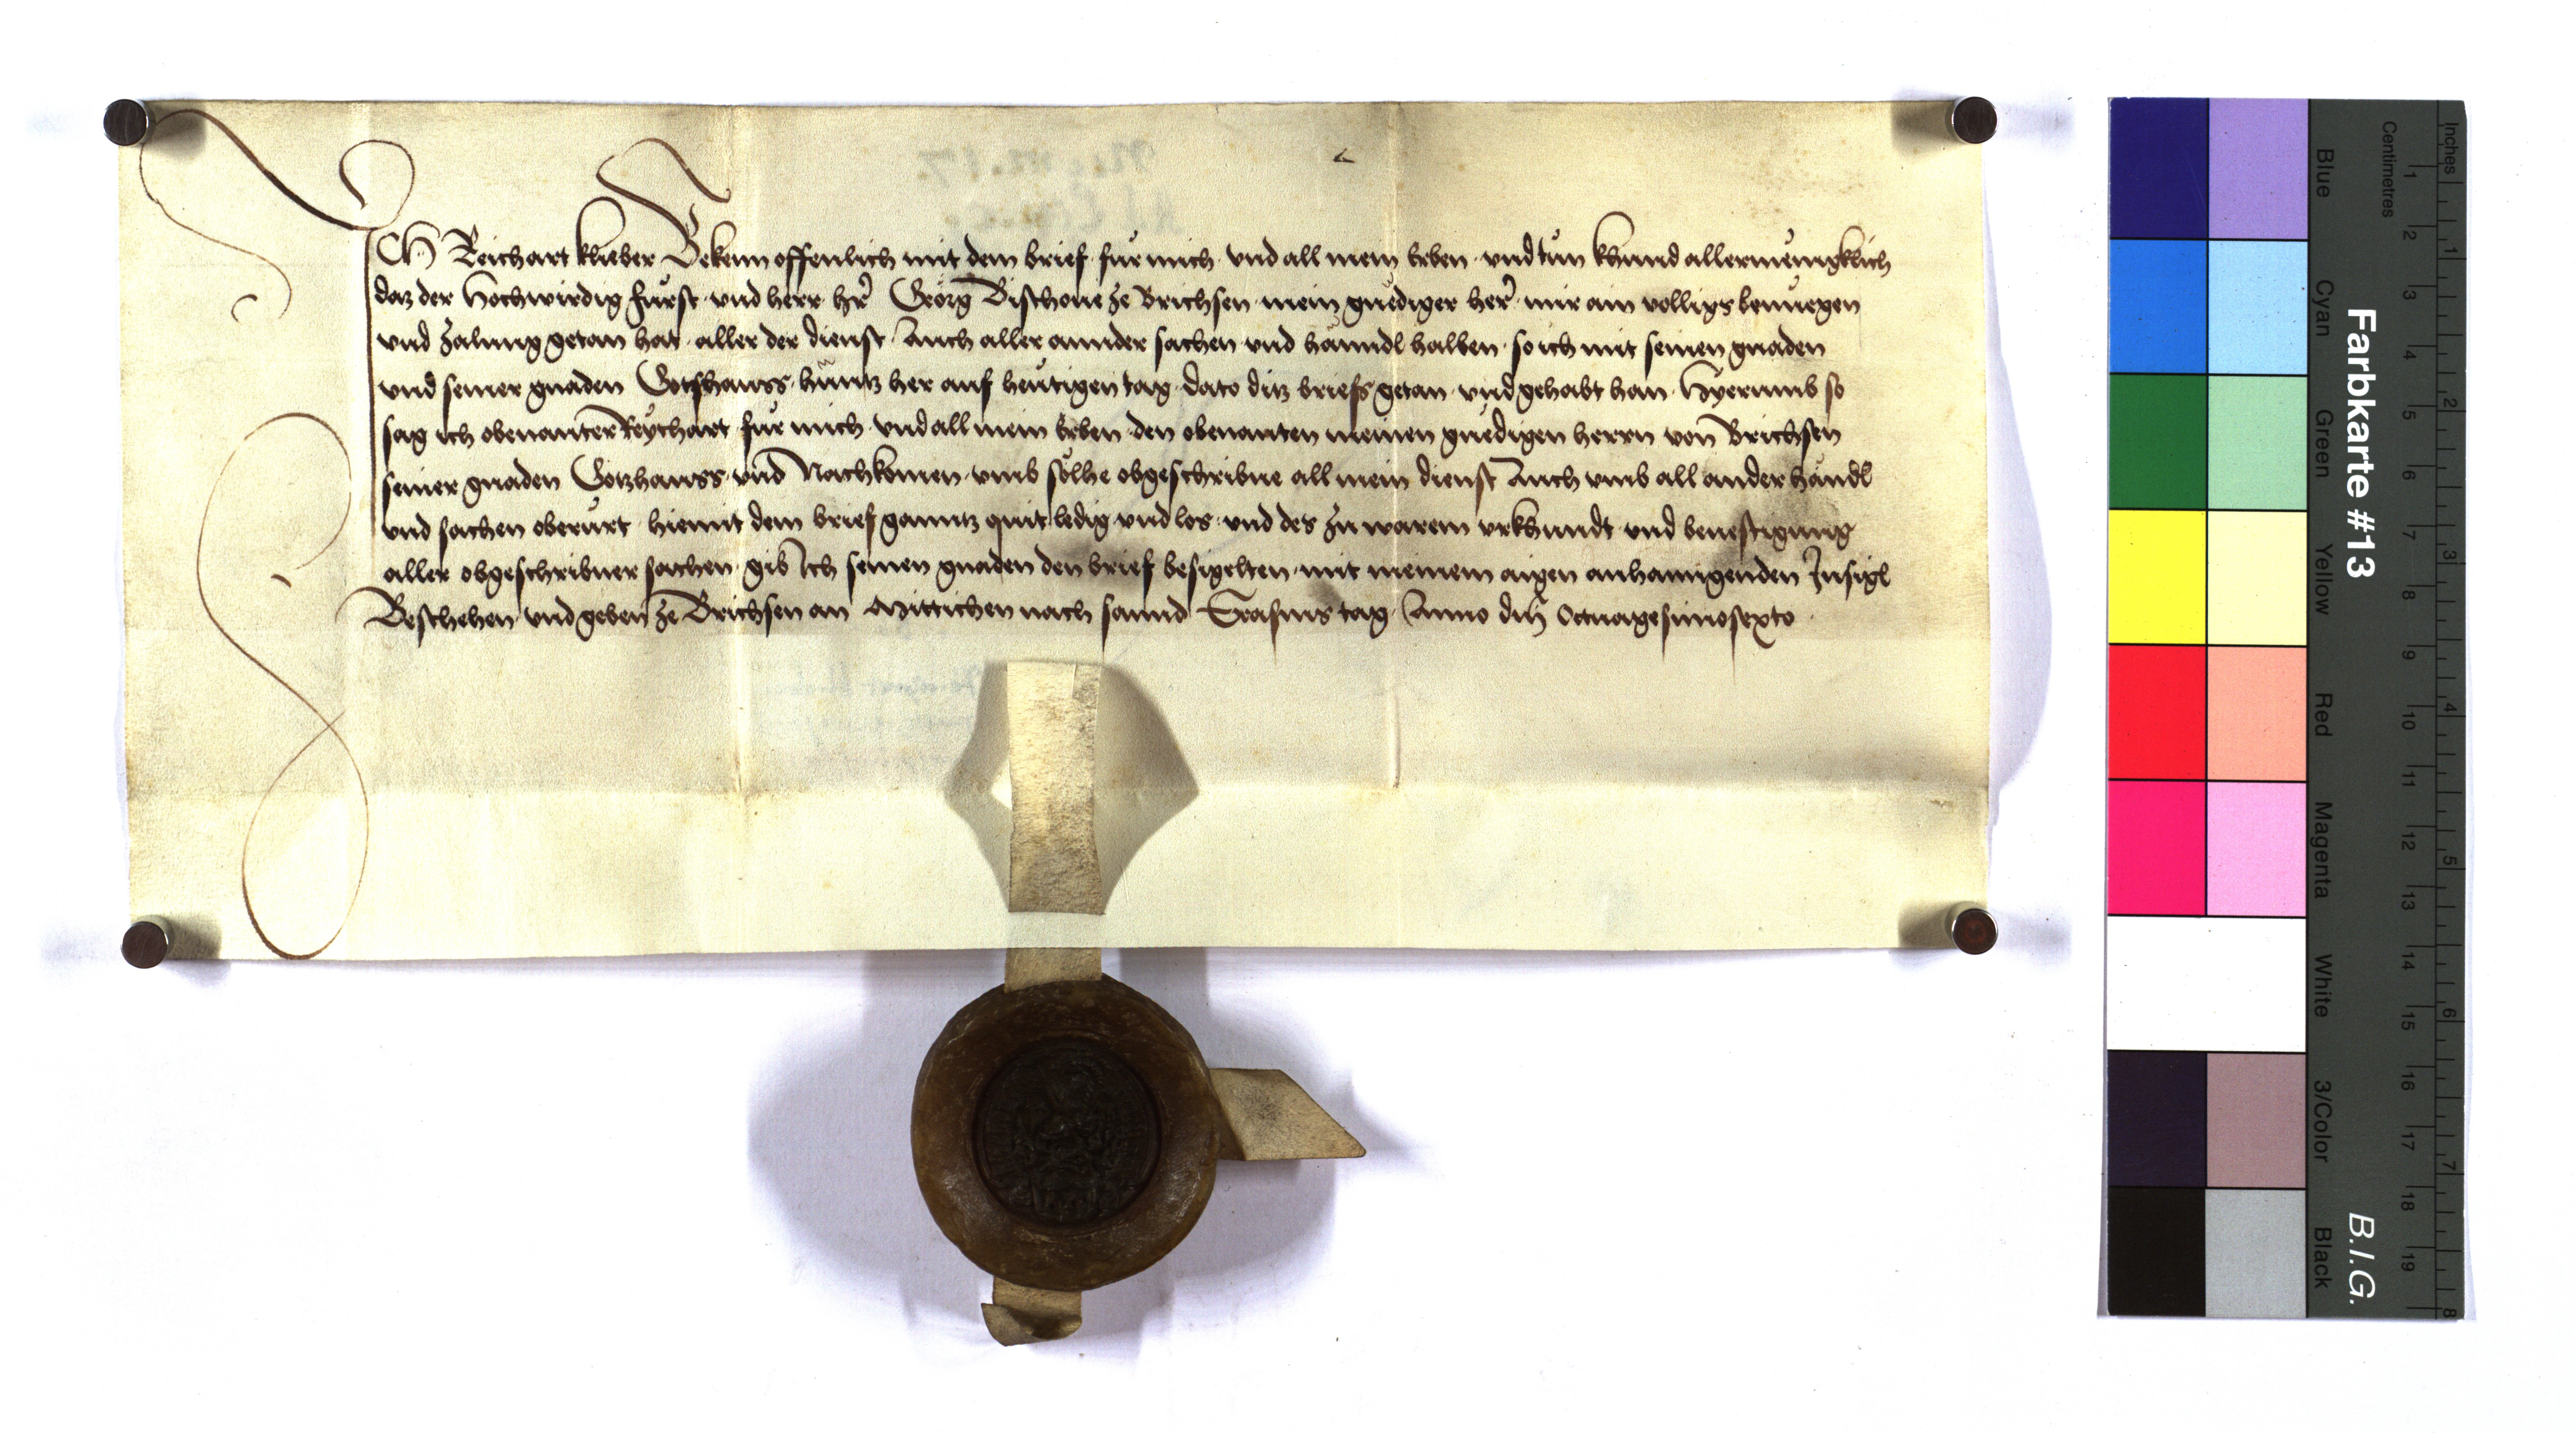 ICH Reichart klieber Bekenn offennlich mit dem brief fuͤr mich vnd all mein Erben vnd tuͦn khund allermeͤnigklich
daz der Hochwirdig fuͤrst vnd herr hr̃ Geoͤrg Bischoue ze Brichsen mein gnediger her̃ mir ain volligs benuͤegen
vnd zalung getan hat aller der dienst Auch aller annder sachen vnd hänndl halben so ich mit seinen gnaden
vnd seiner gnaden Gotshawss hüntz her auf heutigen tag dato ditz briefs getan vnd gehabt han Hyerumb so
sag ich obenanter Reychart fuͤr mich vnd all mein Erben den obenanten meinen gnedigen herrn von Brichsen
seiner gnaden Gotzhawss vnd Nachkomen vmb soͤlhe obgeschribne all mein dienst Auch vmb all ander händl
vnd sachen oberuͤrt hiemit dem brief ganntz quit ledig vnd los vnd des zu warem vrkhundt vnd beuestigung
aller obgeschribner sachen gib Ich seinen gnaden den brief besigelten mit meinem aigen anhanngenden Insigl
Beschehen vnd geben ze Brichsen an Mittichen nach sannd Erasms tag Anno dn̄j Octuagesimosexto
Farbkarte #13
B.I.G.
Blue
Cyan
Green
Yellow
Red
Magenta
White
3/Color
Black
Centimetres
1 2 3 4 5 6 7 8 9 10 11 12 13 14 15 16 17 18 19
Inches
1 2 3 4 5 6 7 8